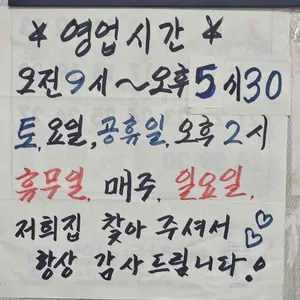 * 영업시간 *
오전9시~오후5시30
토,요일,공휴일,오후2시
휴무일, 매주, 일요일,
저희집 찾아 주셔서
항상 감사드립니다!